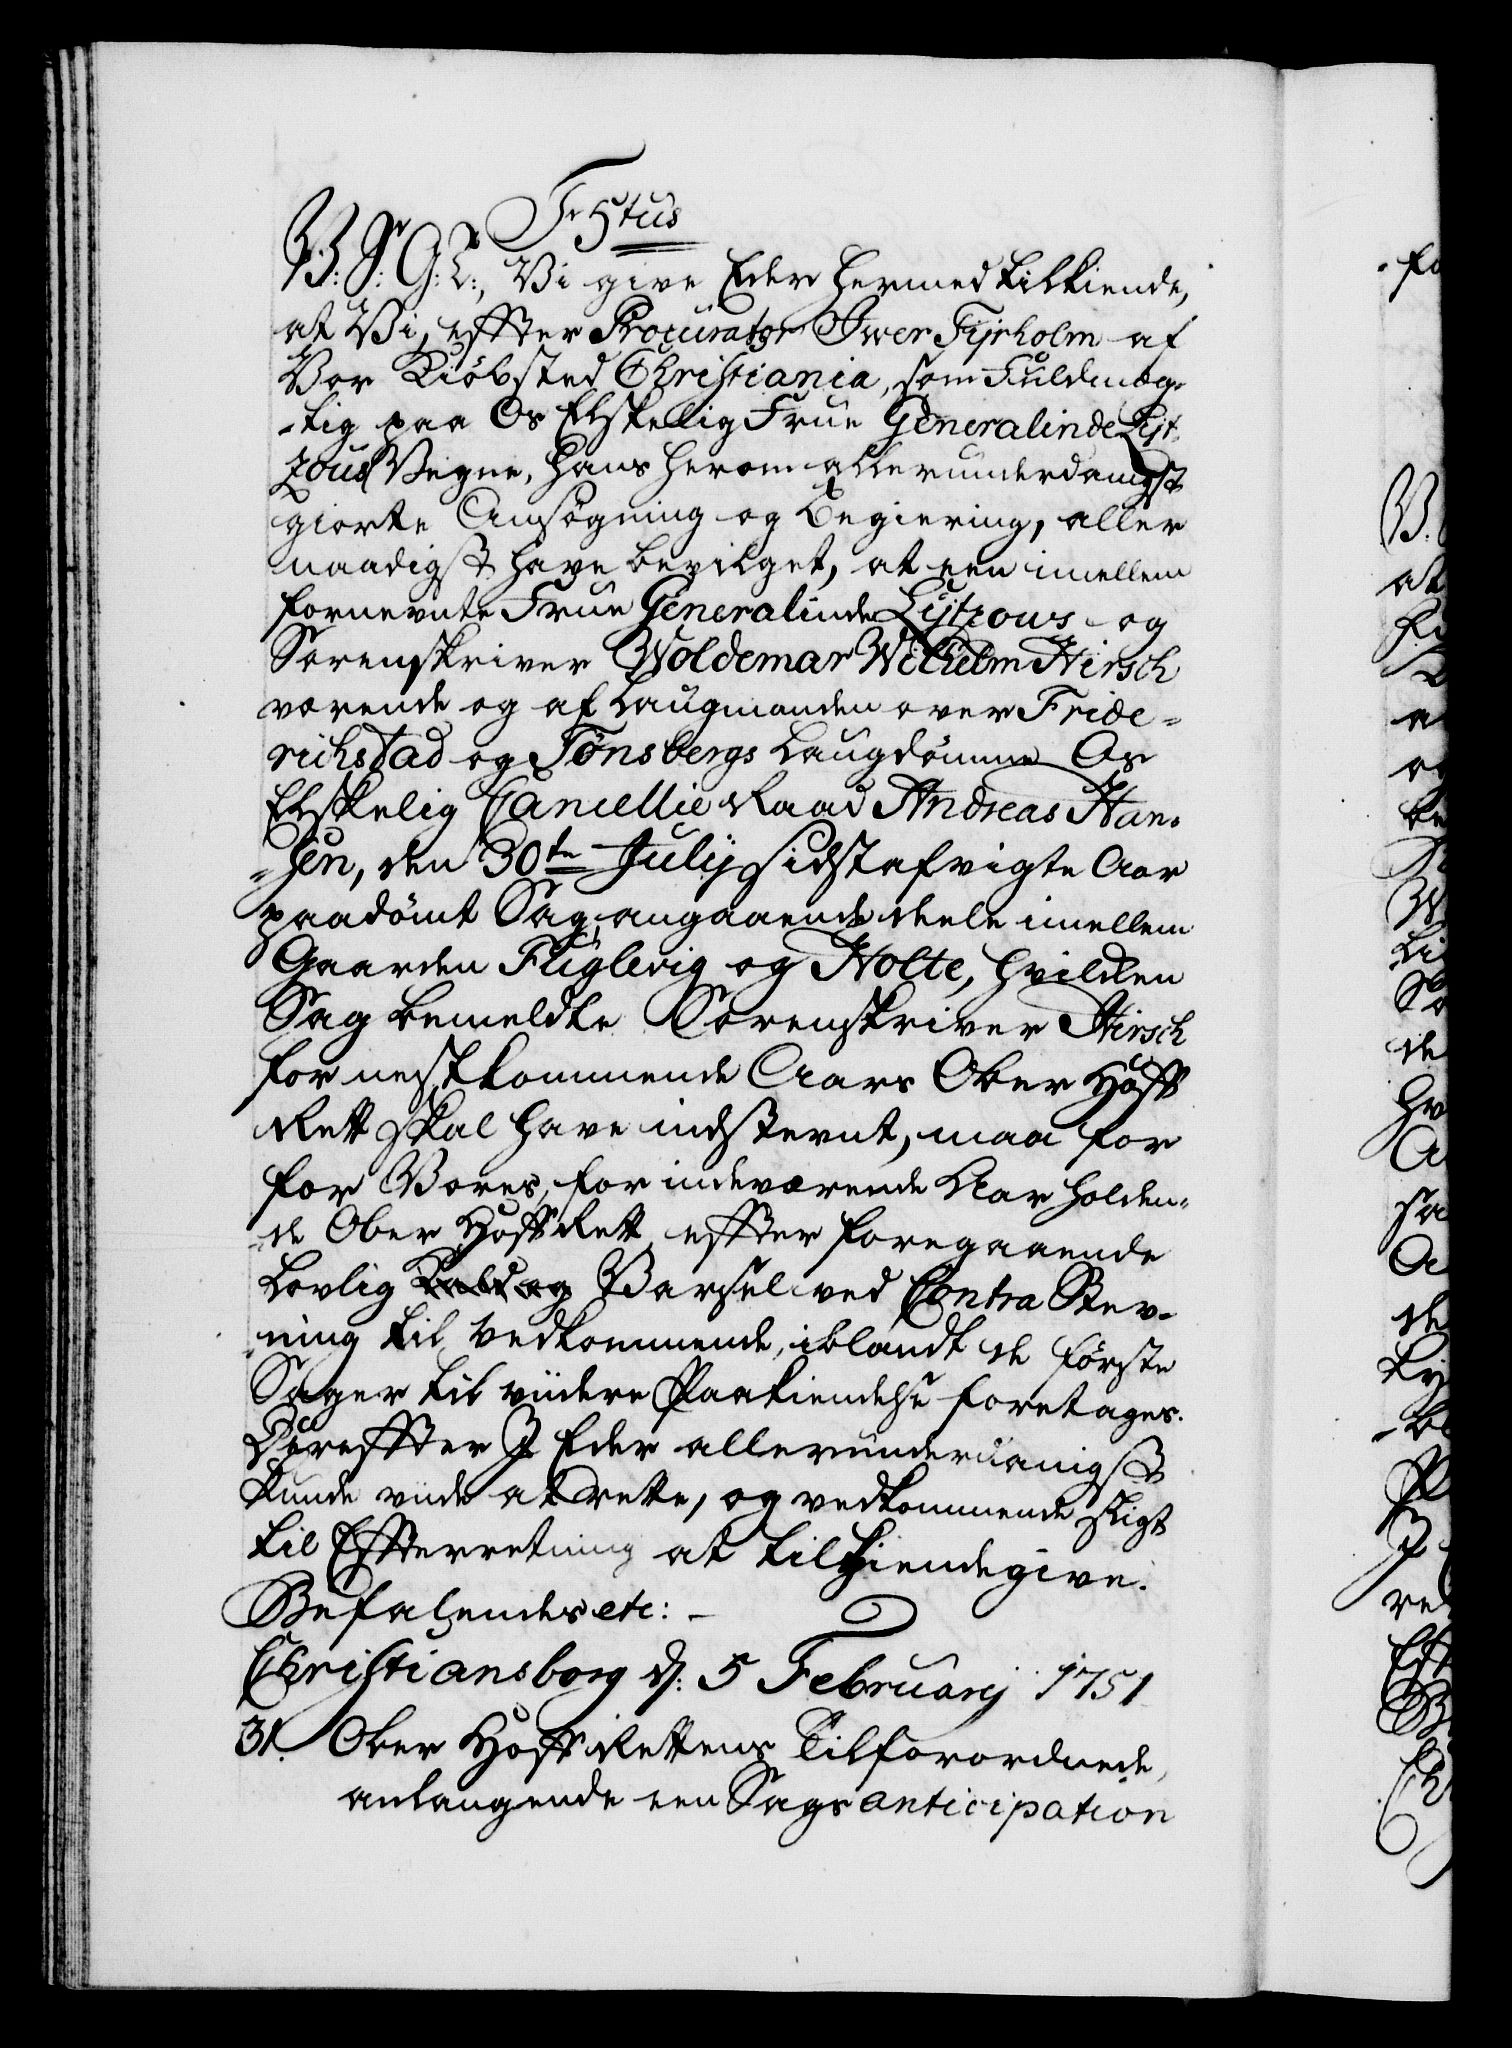 Fr 5tus
V: S: G: T:, Vi give Eder hermed tilkiende,
at Vi, effter Procurator Iwer Fyrholm af
Vor Kiöbsted Christiania, som Fuldmæg-
-tig paa Os Elskelig Frue Generalinde Lyt-
zous Vegne, hans herom allerunderdanigst
giorte Ansøgning og Begiering, aller
naadigst have bevilget, at een imellem
fornevnte Frue Generalinde Lytzows og
Sorenskriver Woldemar Wilhelm Hirsch
værende og af Laugmanden over Fride-
richstad og Tønsbergs Laugdømme Os
Elskelig Cancellie Raad Andreas Han-
-sen, den 30te July sidstafvigte Aar
paadømt Sag, angaaende deele imellem
Gaarden Fuglevig og Holte, hvilken
Sag bemeldte Sorenskriver Hirsch
for nestkommende Aars Ober Hoff
Rett skal have indstevnt, maa for
for Vores, for indeværende Aar holden-
-de Ober Hoff Rett, effter foregaaende
Lovlig Kald og Varsel ved Contra Stev-
-ning til Vedkommende, iblandt de første
Sager til viidere Paakiendelse foretages.
Dereffter I Eder allerunderdanigst
kunde viide at rette, og vedkommende sligt
til Effterretning at tilkiendegive.
Befalendes etc: -
Christiansborg d: 5 February 1751
31. Ober Hoff Rettens Tilforordnede,
anlangende een Sags anticipation